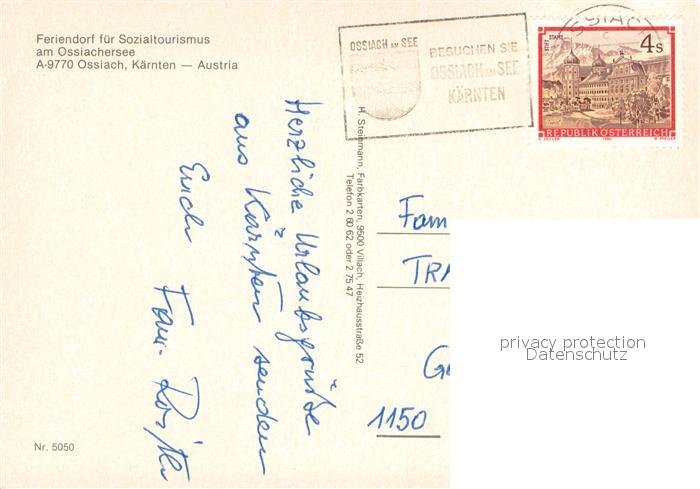 Feriendorf für Sozialtourismus
am Ossiachersee
A-9770 Ossiach, Kärnten — Austria
OSSIACH AM SEE
BESUCHEN SIE
OSSIACH AM SEE
KÄRNTEN
OSSIACH
STIFT STAMS
4 S
REPUBLIK ÖSTERREICH
Herzliche Urlaubsgrüße
aus Kärnten senden
Euch
Fam.
H. Steinmann, Farbkarten, 9500 Villach, Heizhausstraße 52
Telefon 2 60 62 oder 2 75 47
Fam
TRA
1150
privacy protection
Datenschutz
Nr. 5050